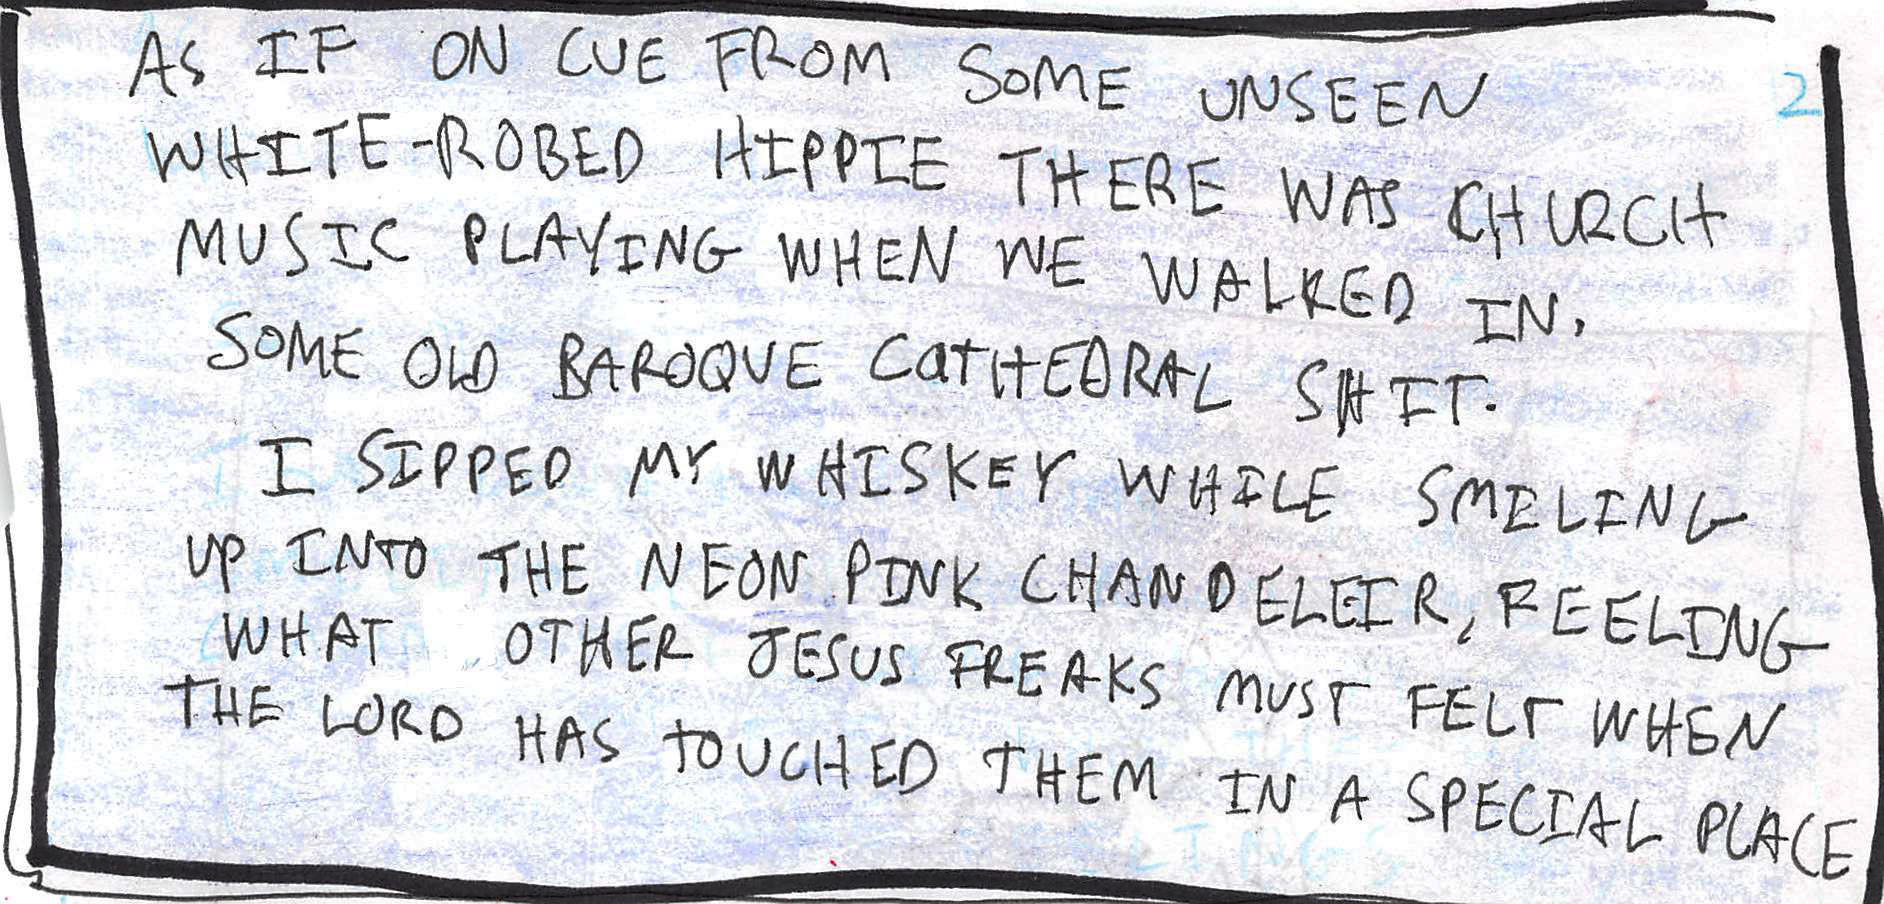 AS IF ON CUE FROM SOME UNSEEN
2
WHITE-ROBED HIPPIE THERE WAS CHURCH
MUSIC PLAYING WHEN WE WALKED IN.
SOME OLD BAROQUE CATHEDRAL SHIT.
I SIPPED MY WHISKEY WHILE SMELING
UP INTO THE NEON PINK CHANDELEIR, FEELING
WHAT OTHER JESUS FREAKS MUST FELT WHEN
THE LORD HAS TOUCHED THEM IN A SPECIAL PLACE